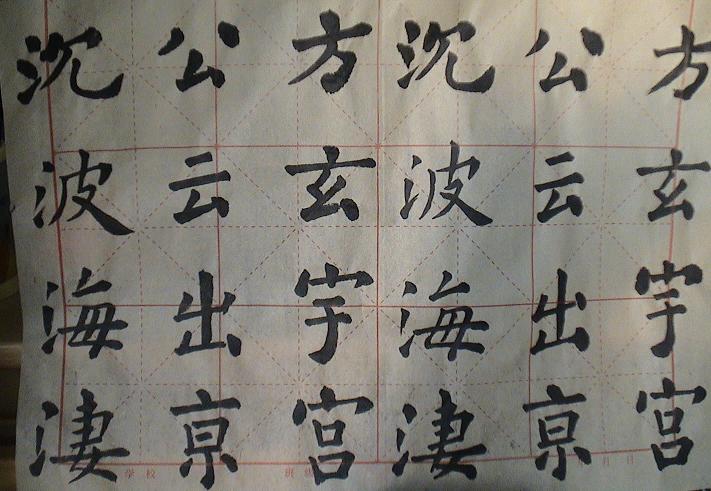 方玄宇宫
公云出京
沉波海淒
方玄宇宫
公云出京
沉波海淒
学校 班 月 日